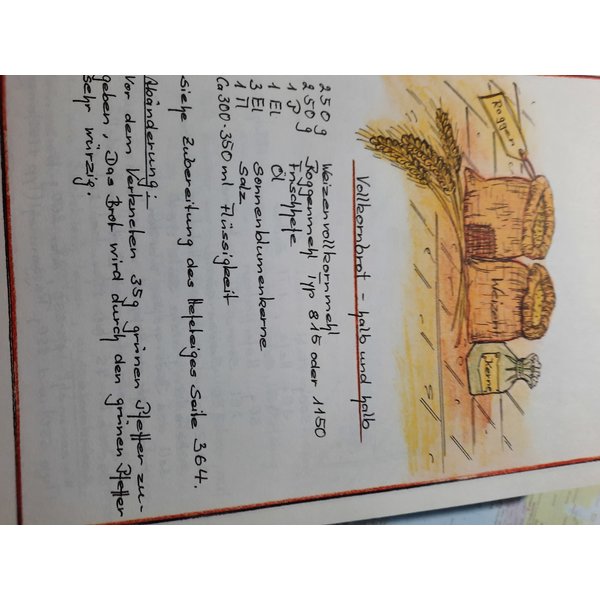 Roggen
Weizen
Kerne
Vollkornbrot - halb und halb
250 g Weizenvollkornmehl
250 g Roggenmehl Typ 815 oder 1150
1 P Frischhefe
1 El Öl
3 El Sonnenblumenkerne
1 Tl Salz
Ca 300-350 ml Flüssigkeit
siehe Zubereitung des Hefeteiges Seite 364.
Abänderung:
Vor dem Verkneten 35g grünen Pfeffer zu-
geben, Das Brot wird durch den grünen Pfeffer
sehr würzig.